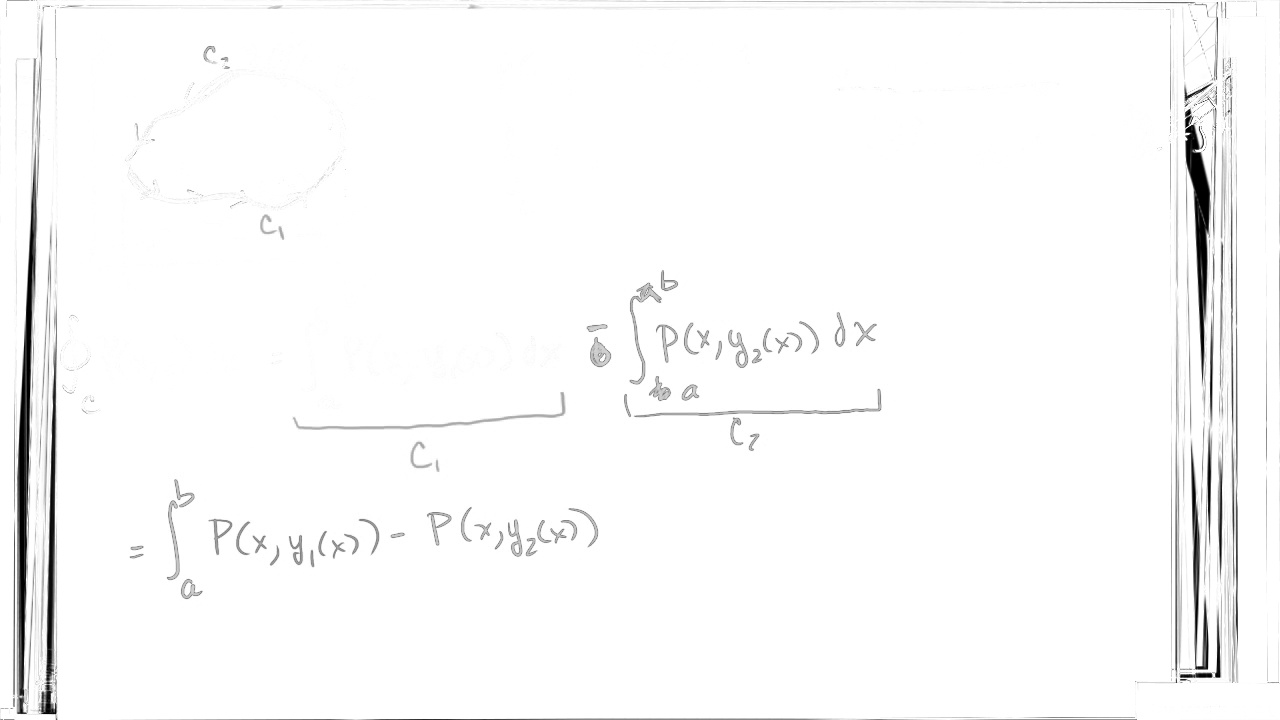 C₂
C₁
= P(x, y₁(x)) dx - ∫ₐᵇ P(x, y₂(x)) dx
C₁ C₂
= ∫ₐᵇ P(x, y₁(x)) - P(x, y₂(x))